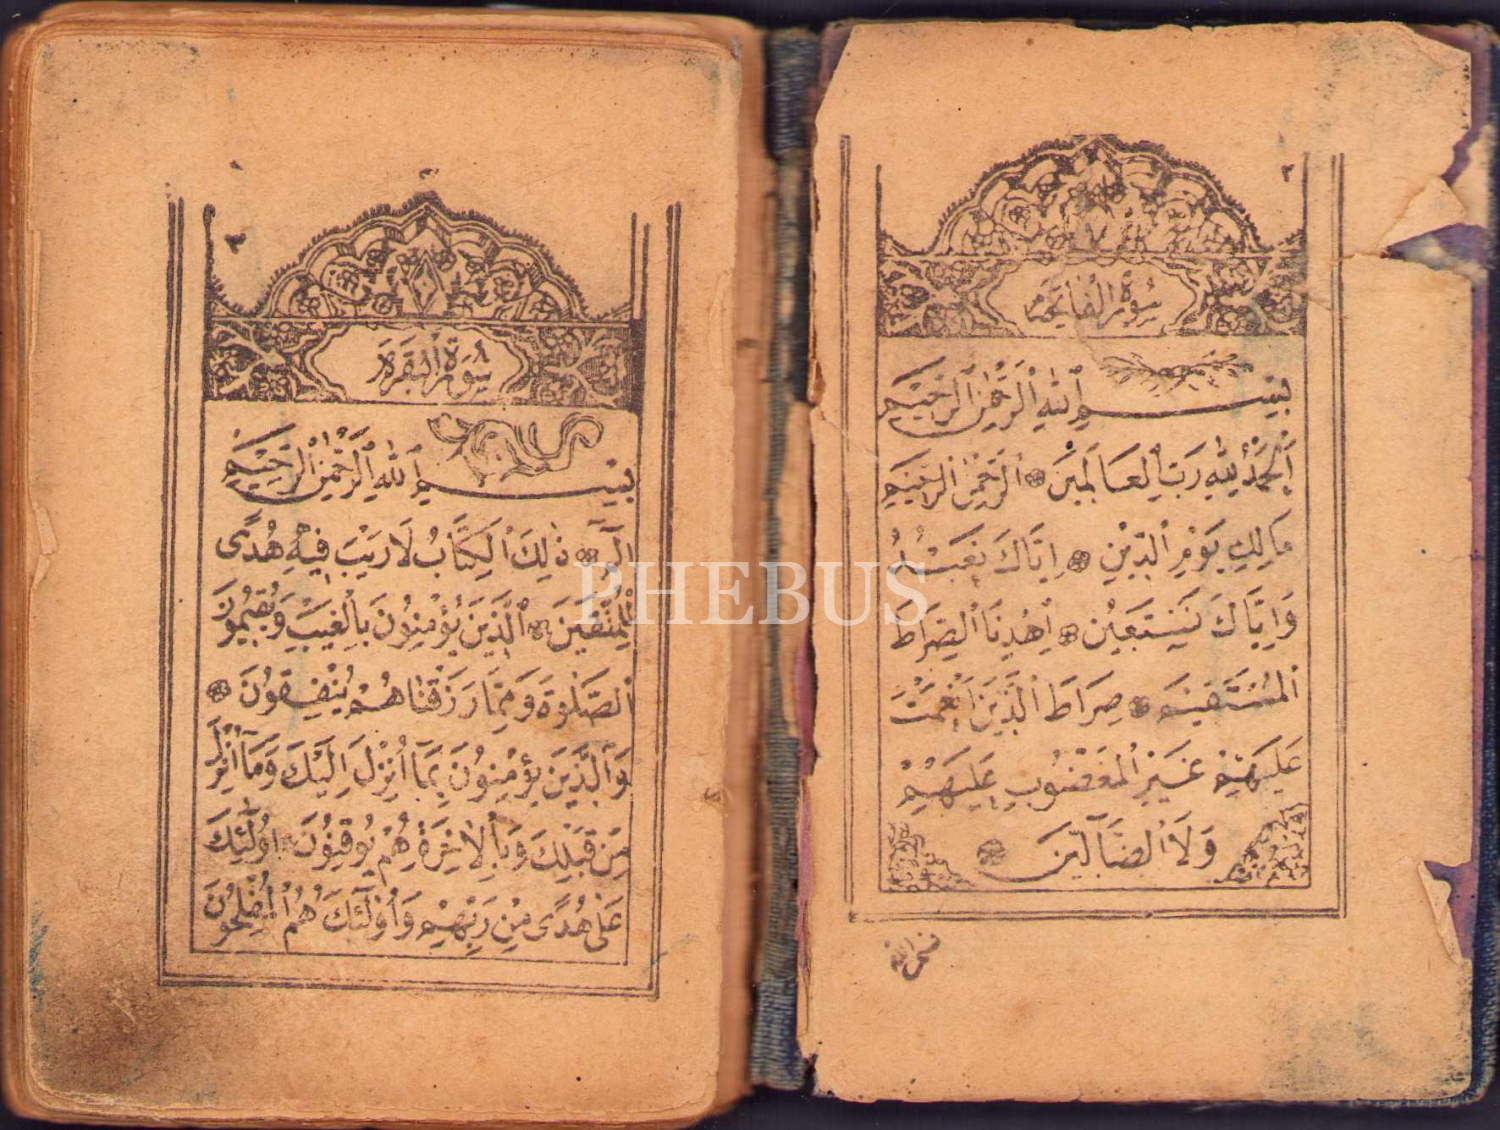 ٢
سُورَةُ الْفَاتِحَةِ
بِسْمِ اللهِ الرَّحْمٰنِ الرَّحِيمِ
اَلْحَمْدُ لِلّٰهِ رَبِّ الْعَالَمِينَ الرَّحْمٰنِ الرَّحِيمِ
مَالِكِ يَوْمِ الدِّينِ اِيَّاكَ نَعْبُدُ
وَاِيَّاكَ نَسْتَعِينُ اِهْدِنَا الصِّرَاطَ
الْمُسْتَقِيمَ صِرَاطَ الَّذِينَ اَنْعَمْتَ
عَلَيْهِمْ غَيْرِ الْمَغْضُوبِ عَلَيْهِمْ
وَلَا الضَّالِّينَ
٣
سُورَةُ الْبَقَرَةِ
بِسْمِ اللهِ الرَّحْمٰنِ الرَّحِيمِ
الٓمٓ ذٰلِكَ الْكِتَابُ لَا رَيْبَ فِيهِ هُدًى
لِلْمُتَّقِينَ الَّذِينَ يُؤْمِنُونَ بِالْغَيْبِ وَيُقِيمُونَ
الصَّلٰوةَ وَمِمَّا رَزَقْنَاهُمْ يُنْفِقُونَ
وَالَّذِينَ يُؤْمِنُونَ بِمَا اُنْزِلَ اِلَيْكَ وَمَا اُنْزِلَ
مِنْ قَبْلِكَ وَبِالْاٰخِرَةِ هُمْ يُوقِنُونَ اُولٰئِكَ
عَلٰى هُدًى مِنْ رَبِّهِمْ وَاُولٰئِكَ هُمُ الْمُفْلِحُونَ
PHEBUS